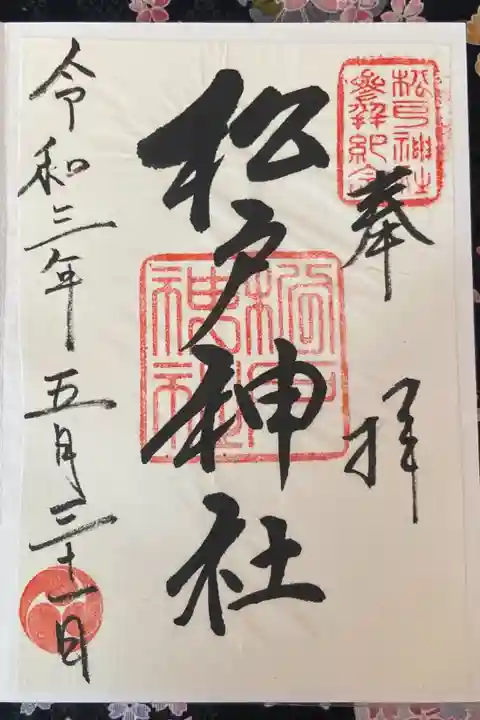 松戸神社
参拝記念
奉拝
松戸神社
松戸
神社
令和三年五月三十一日